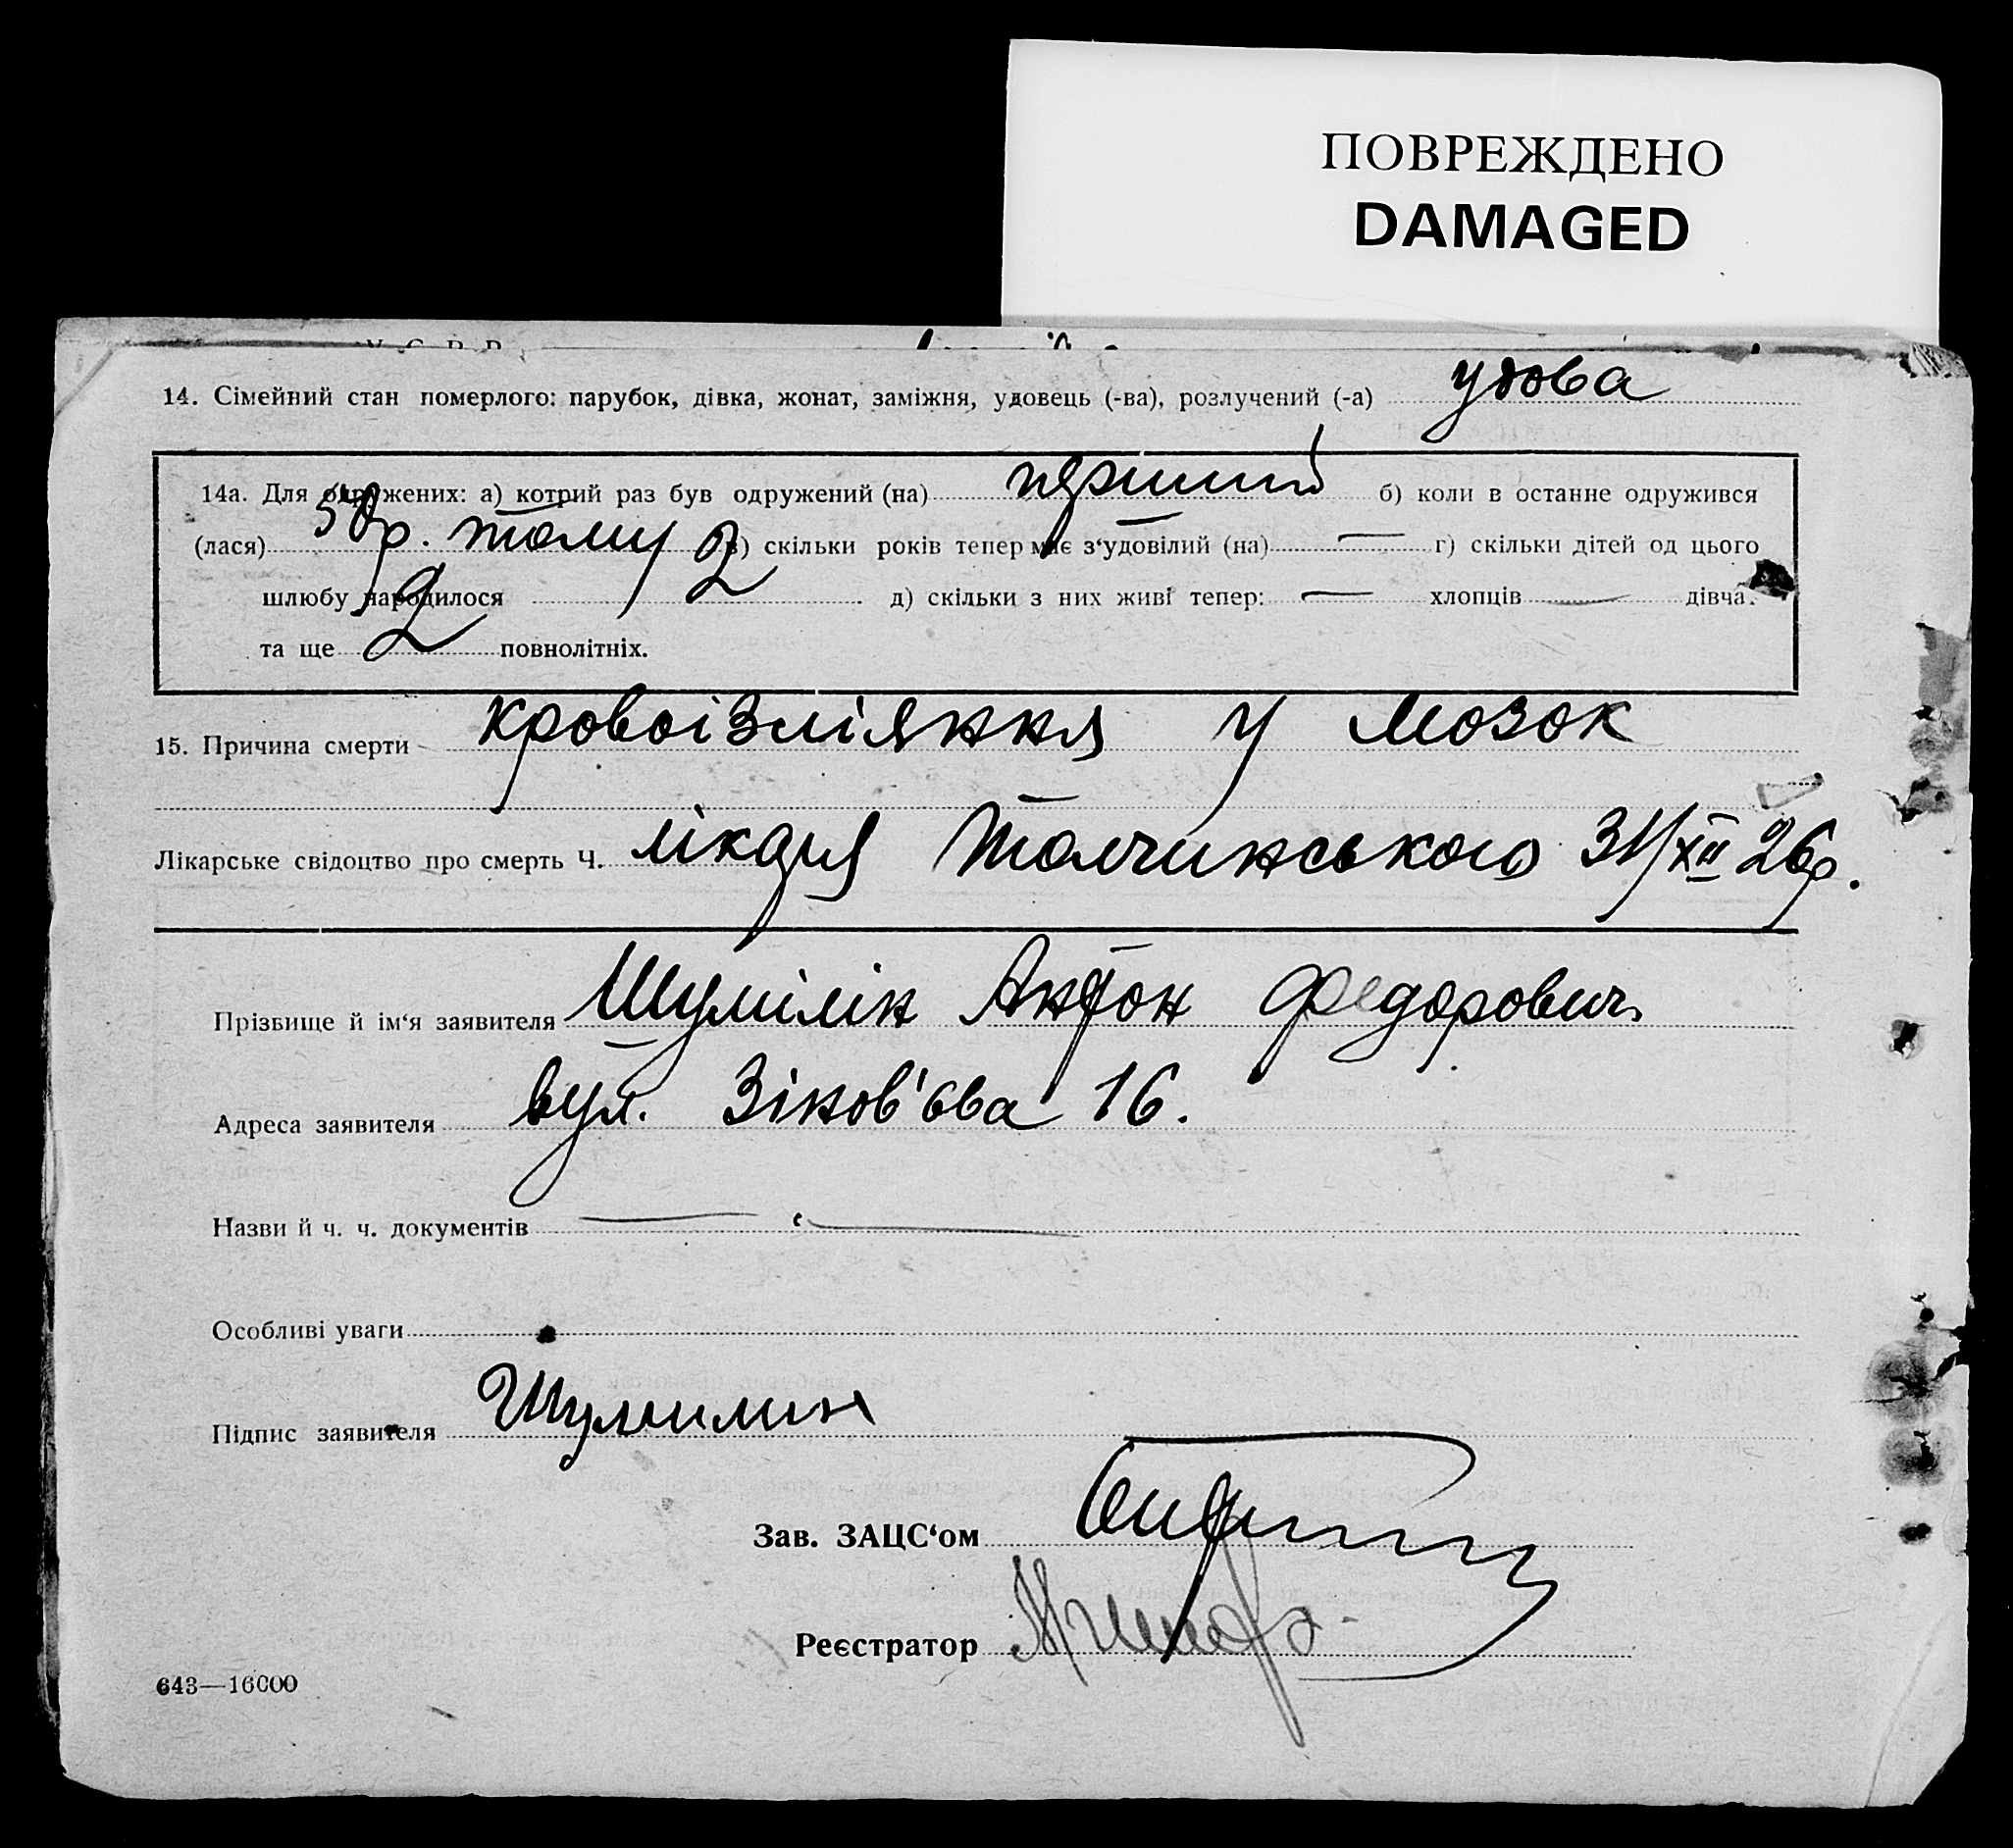 ПОВРЕЖДЕНО
DAMAGED
У С Р Р
14. Сімейний стан померлого: парубок, дівка, жонат, заміжня, удовець (-ва), розлучений (-а) удова
14а. Для одружених: а) котрий раз був одружений (на) перший б) коли в останне одружився
(лася) 50р. тому в) скільки років тепер має з‘удовілий (на) — г) скільки дітей од цього
шлюбу народилося 2 д) скільки з них живі тепер: — хлопців — дівча.
та ще 2 повнолітніх.
15. Причина смерти кровоізліяння у мозок
Лікарське свідоцтво про смерть Ч. лікаря Толчинського 31/XII 26р.
Прізвище й ім‘я заявителя Шумілін Антон Федорович
Адреса заявителя вул. Зінов'єва 16.
Назви й ч. ч. документів —
Особливі уваги
Підпис заявителя Шумилин
Зав. ЗАЦС‘ом
Реєстратор
643—16000